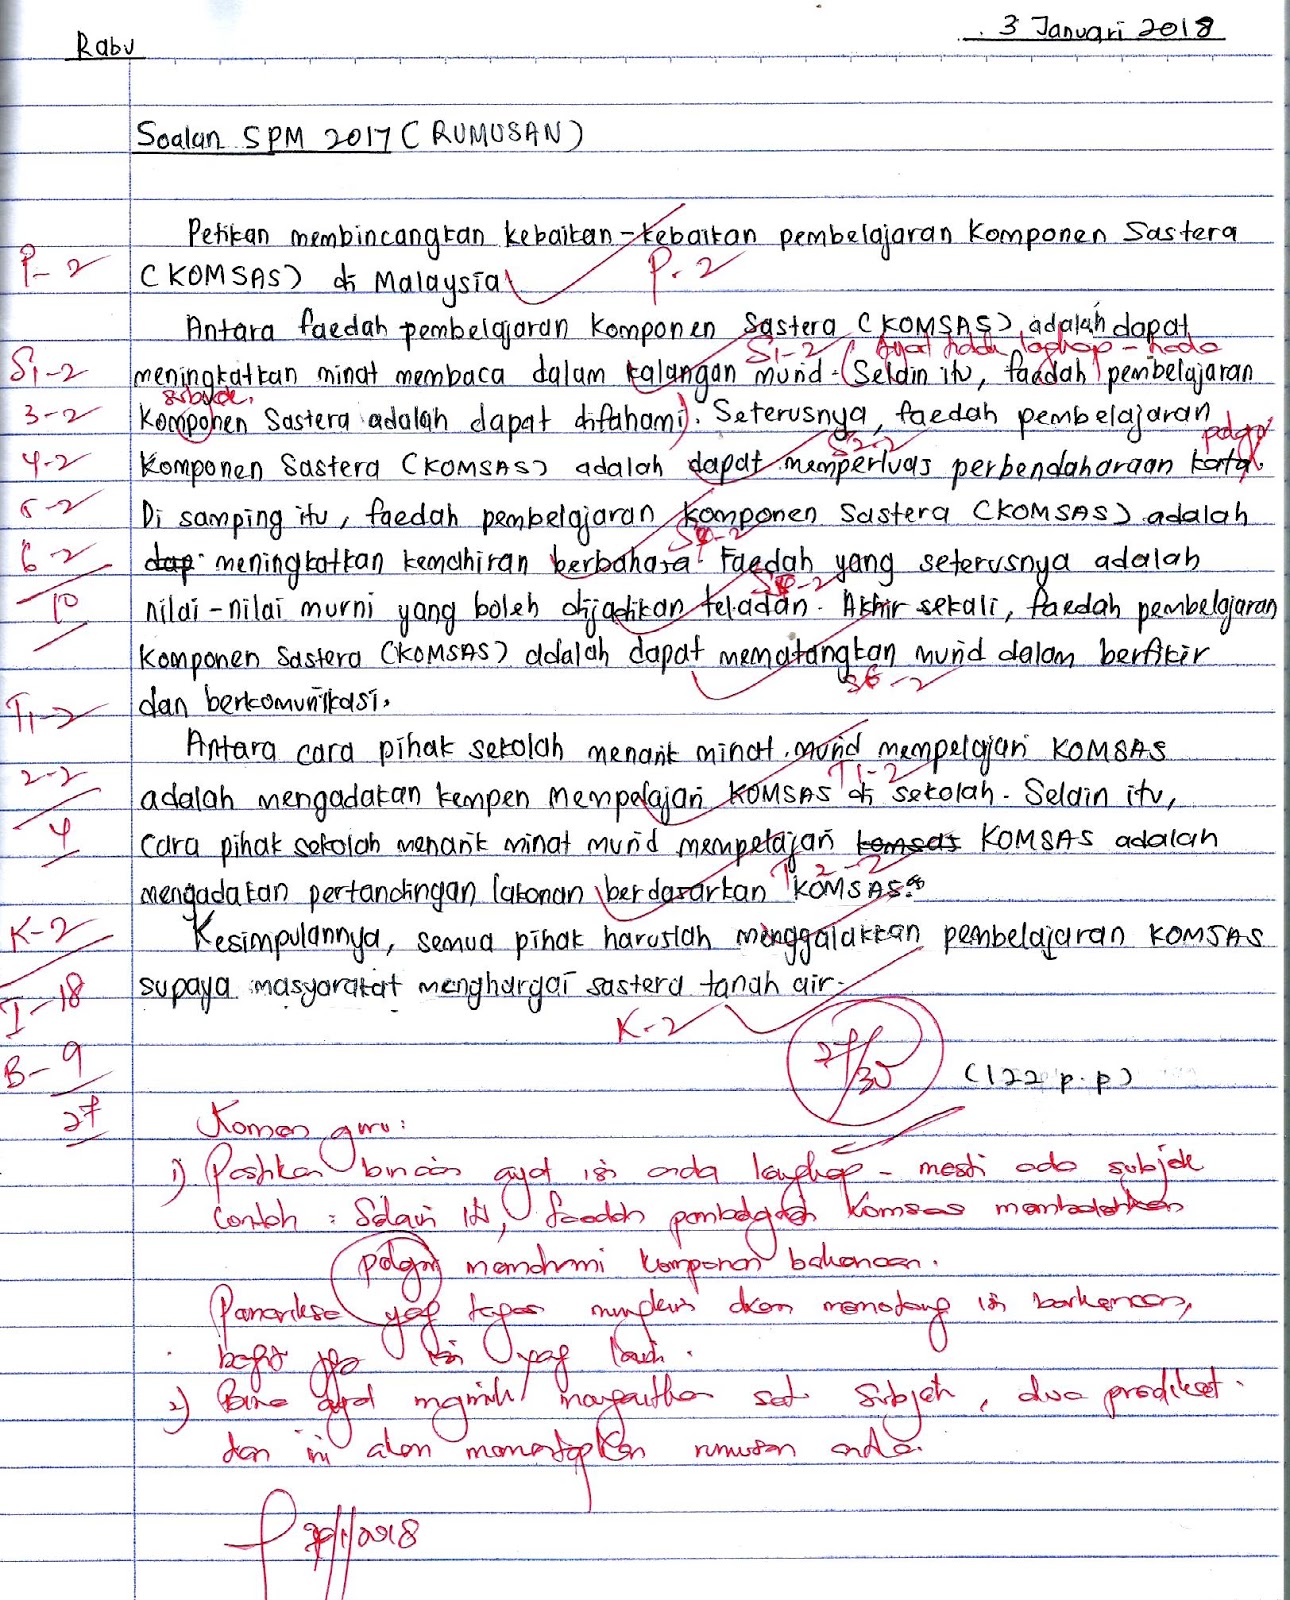 Rabu
3 Januari 2018
Soalan SPM 2017 (RUMUSAN)
Petikan membincangkan kebaikan-kebaikan pembelajaran Komponen Sastera
P-2
P-2
(KOMSAS) di Malaysia
Antara faedah pembelajaran Komponen Sastera (KOMSAS) adalah dapat
S1-2
(Ayat tidak lengkap - tiada
S1-2
meningkatkan minat membaca dalam kalangan murid. Selain itu, faedah pembelajaran
subjek.
3-2
Komponen Sastera adalah dapat difahami). Seterusnya, faedah pembelajaran
S2-2
pelajar
4-2
Komponen Sastera (KOMSAS) adalah dapat memperluas perbendaharaan kata.
5-2
Di samping itu, faedah pembelajaran Komponen Sastera (KOMSAS) adalah
6-2
dap meningkatkan kemahiran berbahasa. Faedah yang seterusnya adalah
10
nilai-nilai murni yang boleh dijadikan teladan. Akhir sekali, faedah pembelajaran
Komponen Sastera (KOMSAS) adalah dapat mematangkan murid dalam berfikir
S6-2
T1-2
dan berkomunikasi.
Antara cara pihak sekolah menarik minat murid mempelajari KOMSAS
T1-2
2-2
adalah mengadakan kempen mempelajari KOMSAS di sekolah. Selain itu,
4
cara pihak sekolah menarik minat murid mempelajari komsas KOMSAS adalah
T2-2
mengadakan pertandingan lakonan berdasarkan KOMSAS.
K-2
Kesimpulannya, semua pihak haruslah menggalakkan pembelajaran KOMSAS
I-18
supaya masyarakat menghargai sastera tanah air.
K-2
27/30
B-9
(122 p.p)
27
Komen guru:
1) Pastikan binaan ayat isi anda lengkap - mesti ada subjek
Contoh : Selain itu, faedah pembelajaran Komsas membolehkan
pelajar memahami komponen bahasa.
Pemeriksa yang tegas mungkin akan memotong isi berkenaan,
begitu juga isi yang lain.
2) Bina ayat majmuk mengaitkan satu subjek, dua predikat.
dan ini akan memantapkan rumusan anda.
/1/2018